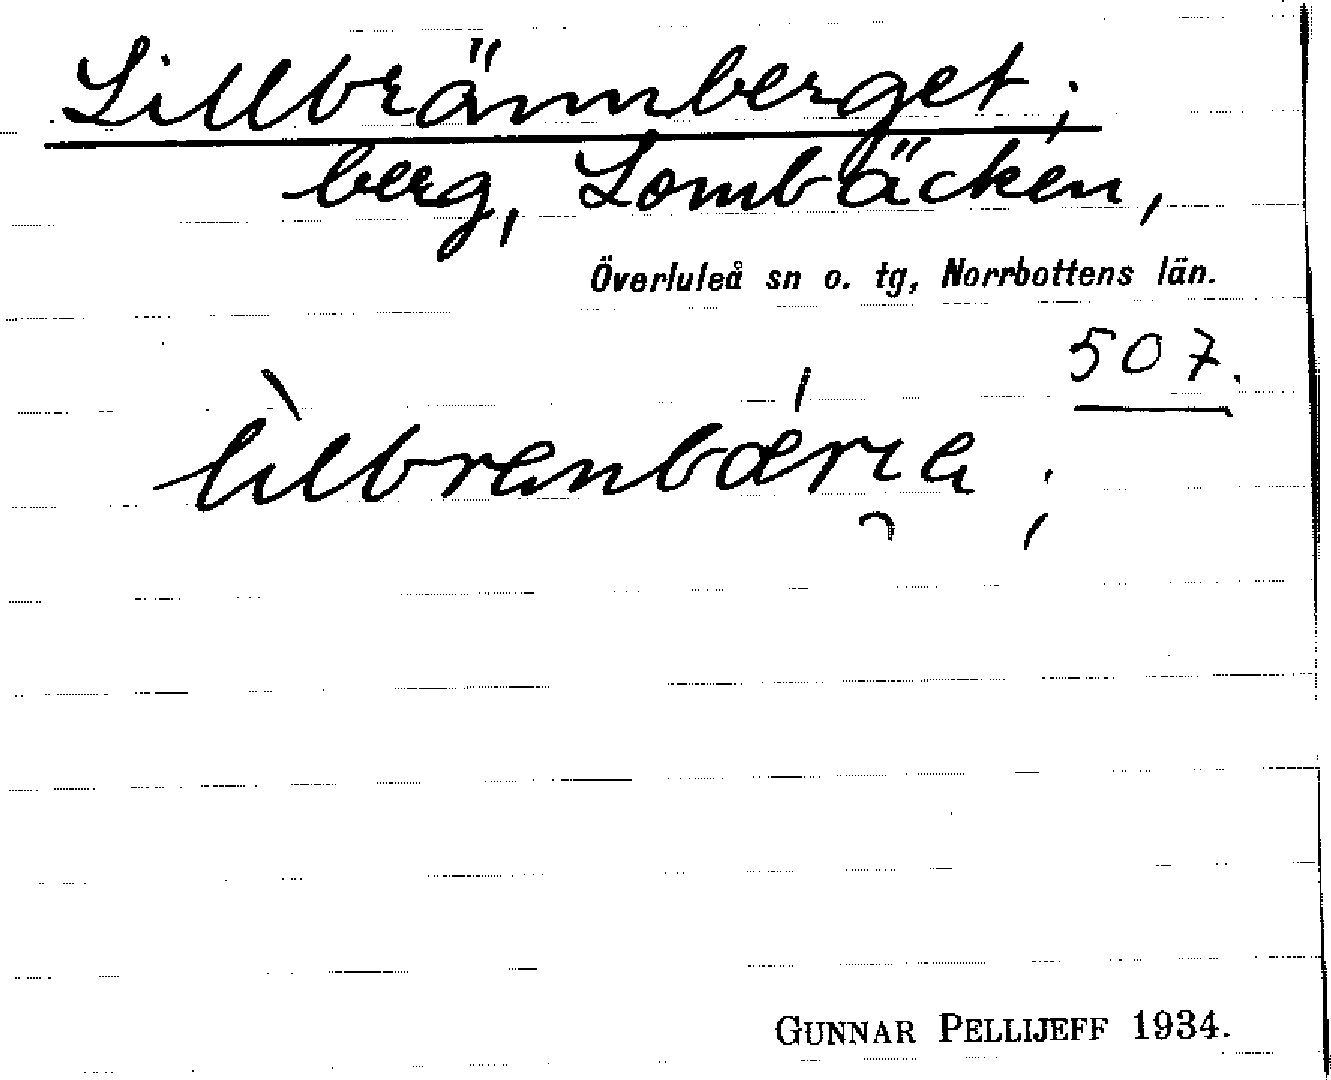 Lillbrännberget;
berg, Lombäcken,
Överluleå sn o. tg, Norrbottens län.
507.
GUNNAR PELLIJEFF 1934.